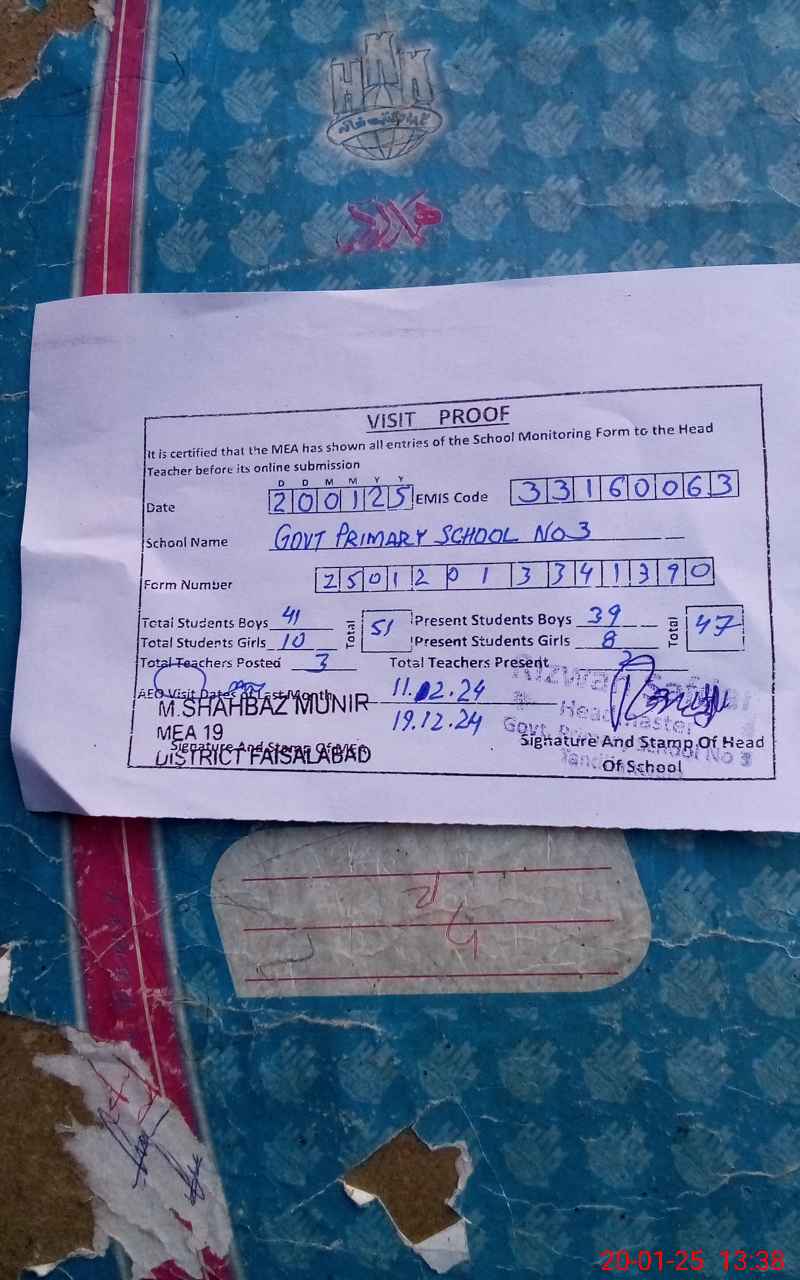 HKK
VISIT PROOF
It is certified that the MEA has shown all entries of the School Monitoring Form to the Head
Teacher before its online submission
D D M M Y Y
Date 200125 EMIS Code 33160063
School Name GOVT PRIMARY SCHOOL NO 3
Form Number 25012013341390
Total Students Boys 41 Total 51 Present Students Boys 39 Total 47
Total Students Girls 10 Present Students Girls 8
Total Teachers Posted 3 Total Teachers Present 2
AEO Visit Dates of Last Month 11.12.24
19.12.24
M.SHAHBAZ MUNIR
MEA 19
Signature And Stamp Of MEA
DISTRICT FAISALABAD
Rizwan Safdar
Head Master
Govt. Primary School No 3
Signature And Stamp Of Head
Of School
20-01-25 13:38